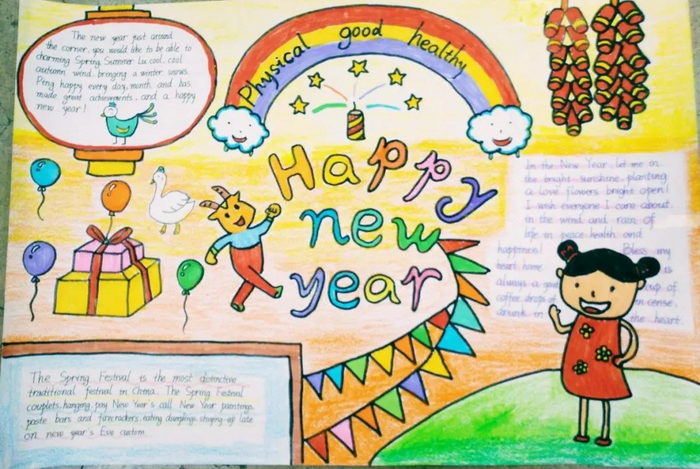 The new year just around
the corner, you would like to be able to
charming Spring, Summer Lu, cool, cool
autumn wind, bringing a winter works.
Peng happy every day, month and has
made great achievements, and a happy
new year!
Physical good healthy
Happy
new
year
In the New Year, let me in
the bright sunshine, planting
a love flowers bright open!
I wish everyone I care about,
in the wind and rain of
life in peace, health and
happiness! Bless my
heart home is
always a cup of
coffee, drops of in sense,
drunk in the heart.
The Spring Festival is the most distinctive
traditional festival in China. The Spring Festival
couplets, hanging, pay New Year's call, New Year paintings,
paste bars and firecrackers, eating dumplings, staying up late
on new year's Eve custom.